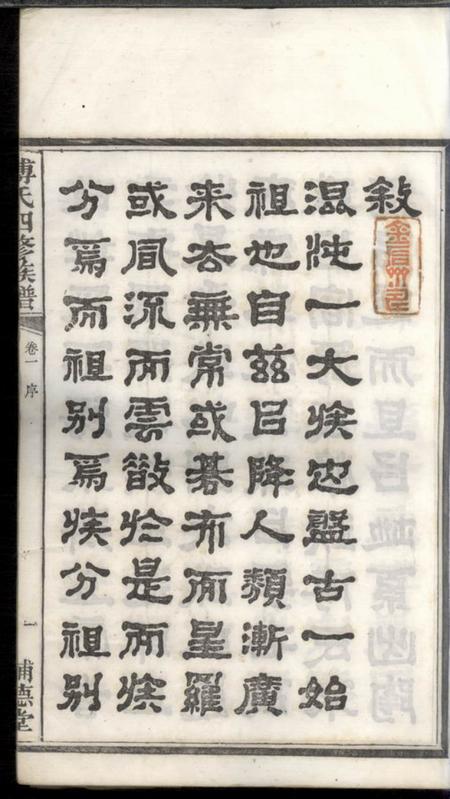 敘
混沌一大族也盤古一始
祖也自茲㠯降人類漸廣
来去無常或棊布而星羅
或同流而雲散於是而族
分焉而祖別焉族分祖別
傅氏四修族譜
卷一 序
一
補德堂